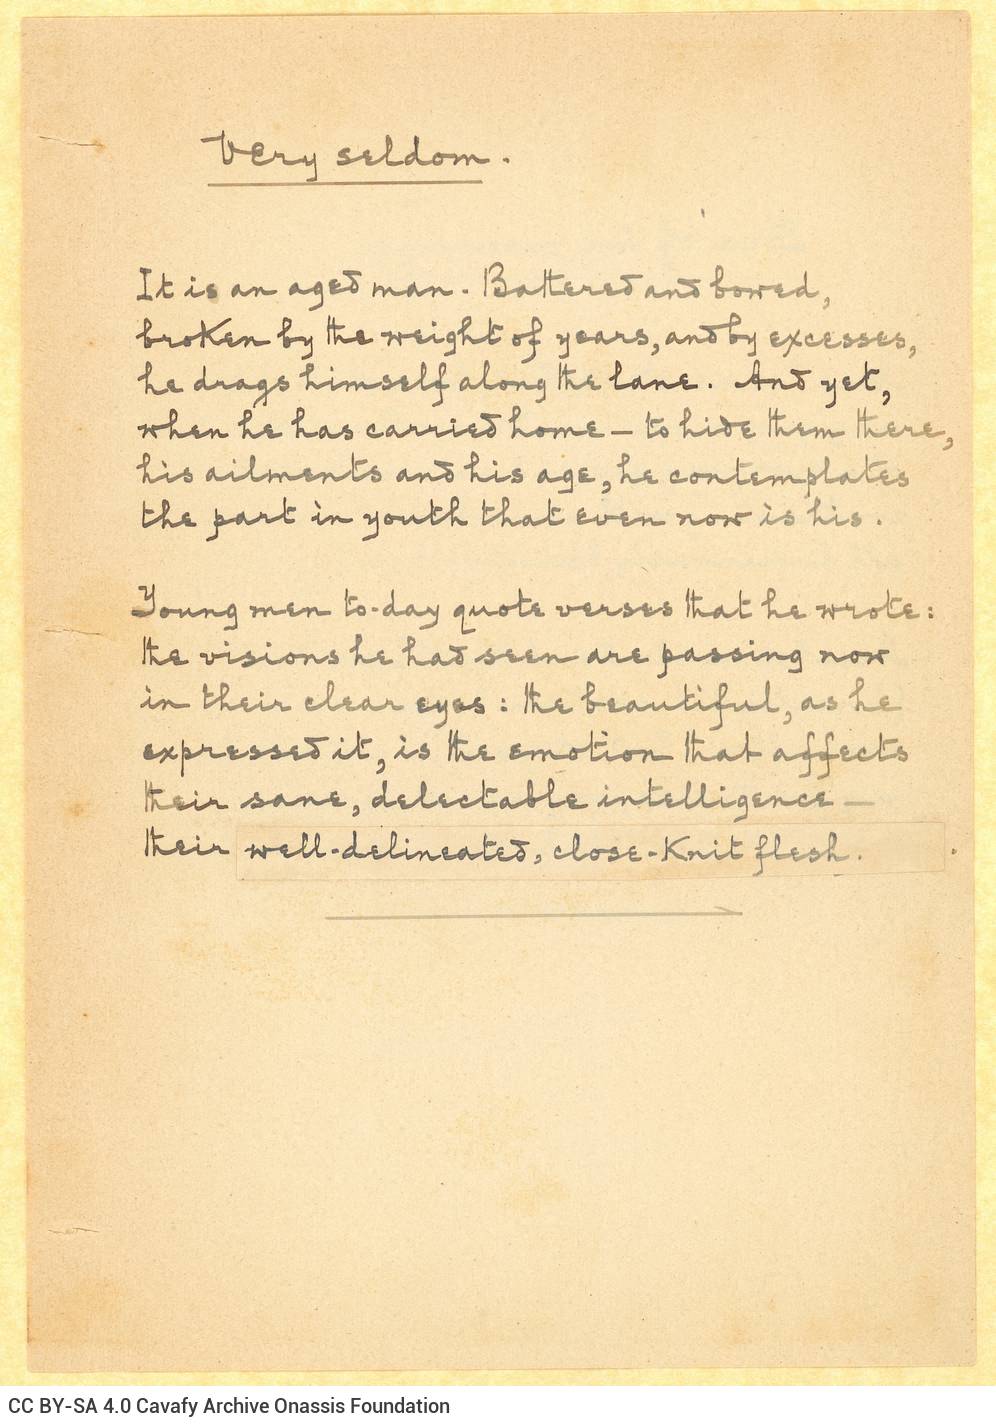 Very seldom.
It is an aged man. Battered and bowed,
broken by the weight of years, and by excesses,
he drags himself along the lane. And yet,
when he has carried home — to hide them there,
his ailments and his age, he contemplates
the part in youth that even now is his.
Young men to-day quote verses that he wrote:
the visions he had seen are passing now
in their clear eyes: the beautiful, as he
expressed it, is the emotion that affects
their sane, delectable intelligence —
their well-delineated, close-knit flesh.
CC BY-SA 4.0 Cavafy Archive Onassis Foundation